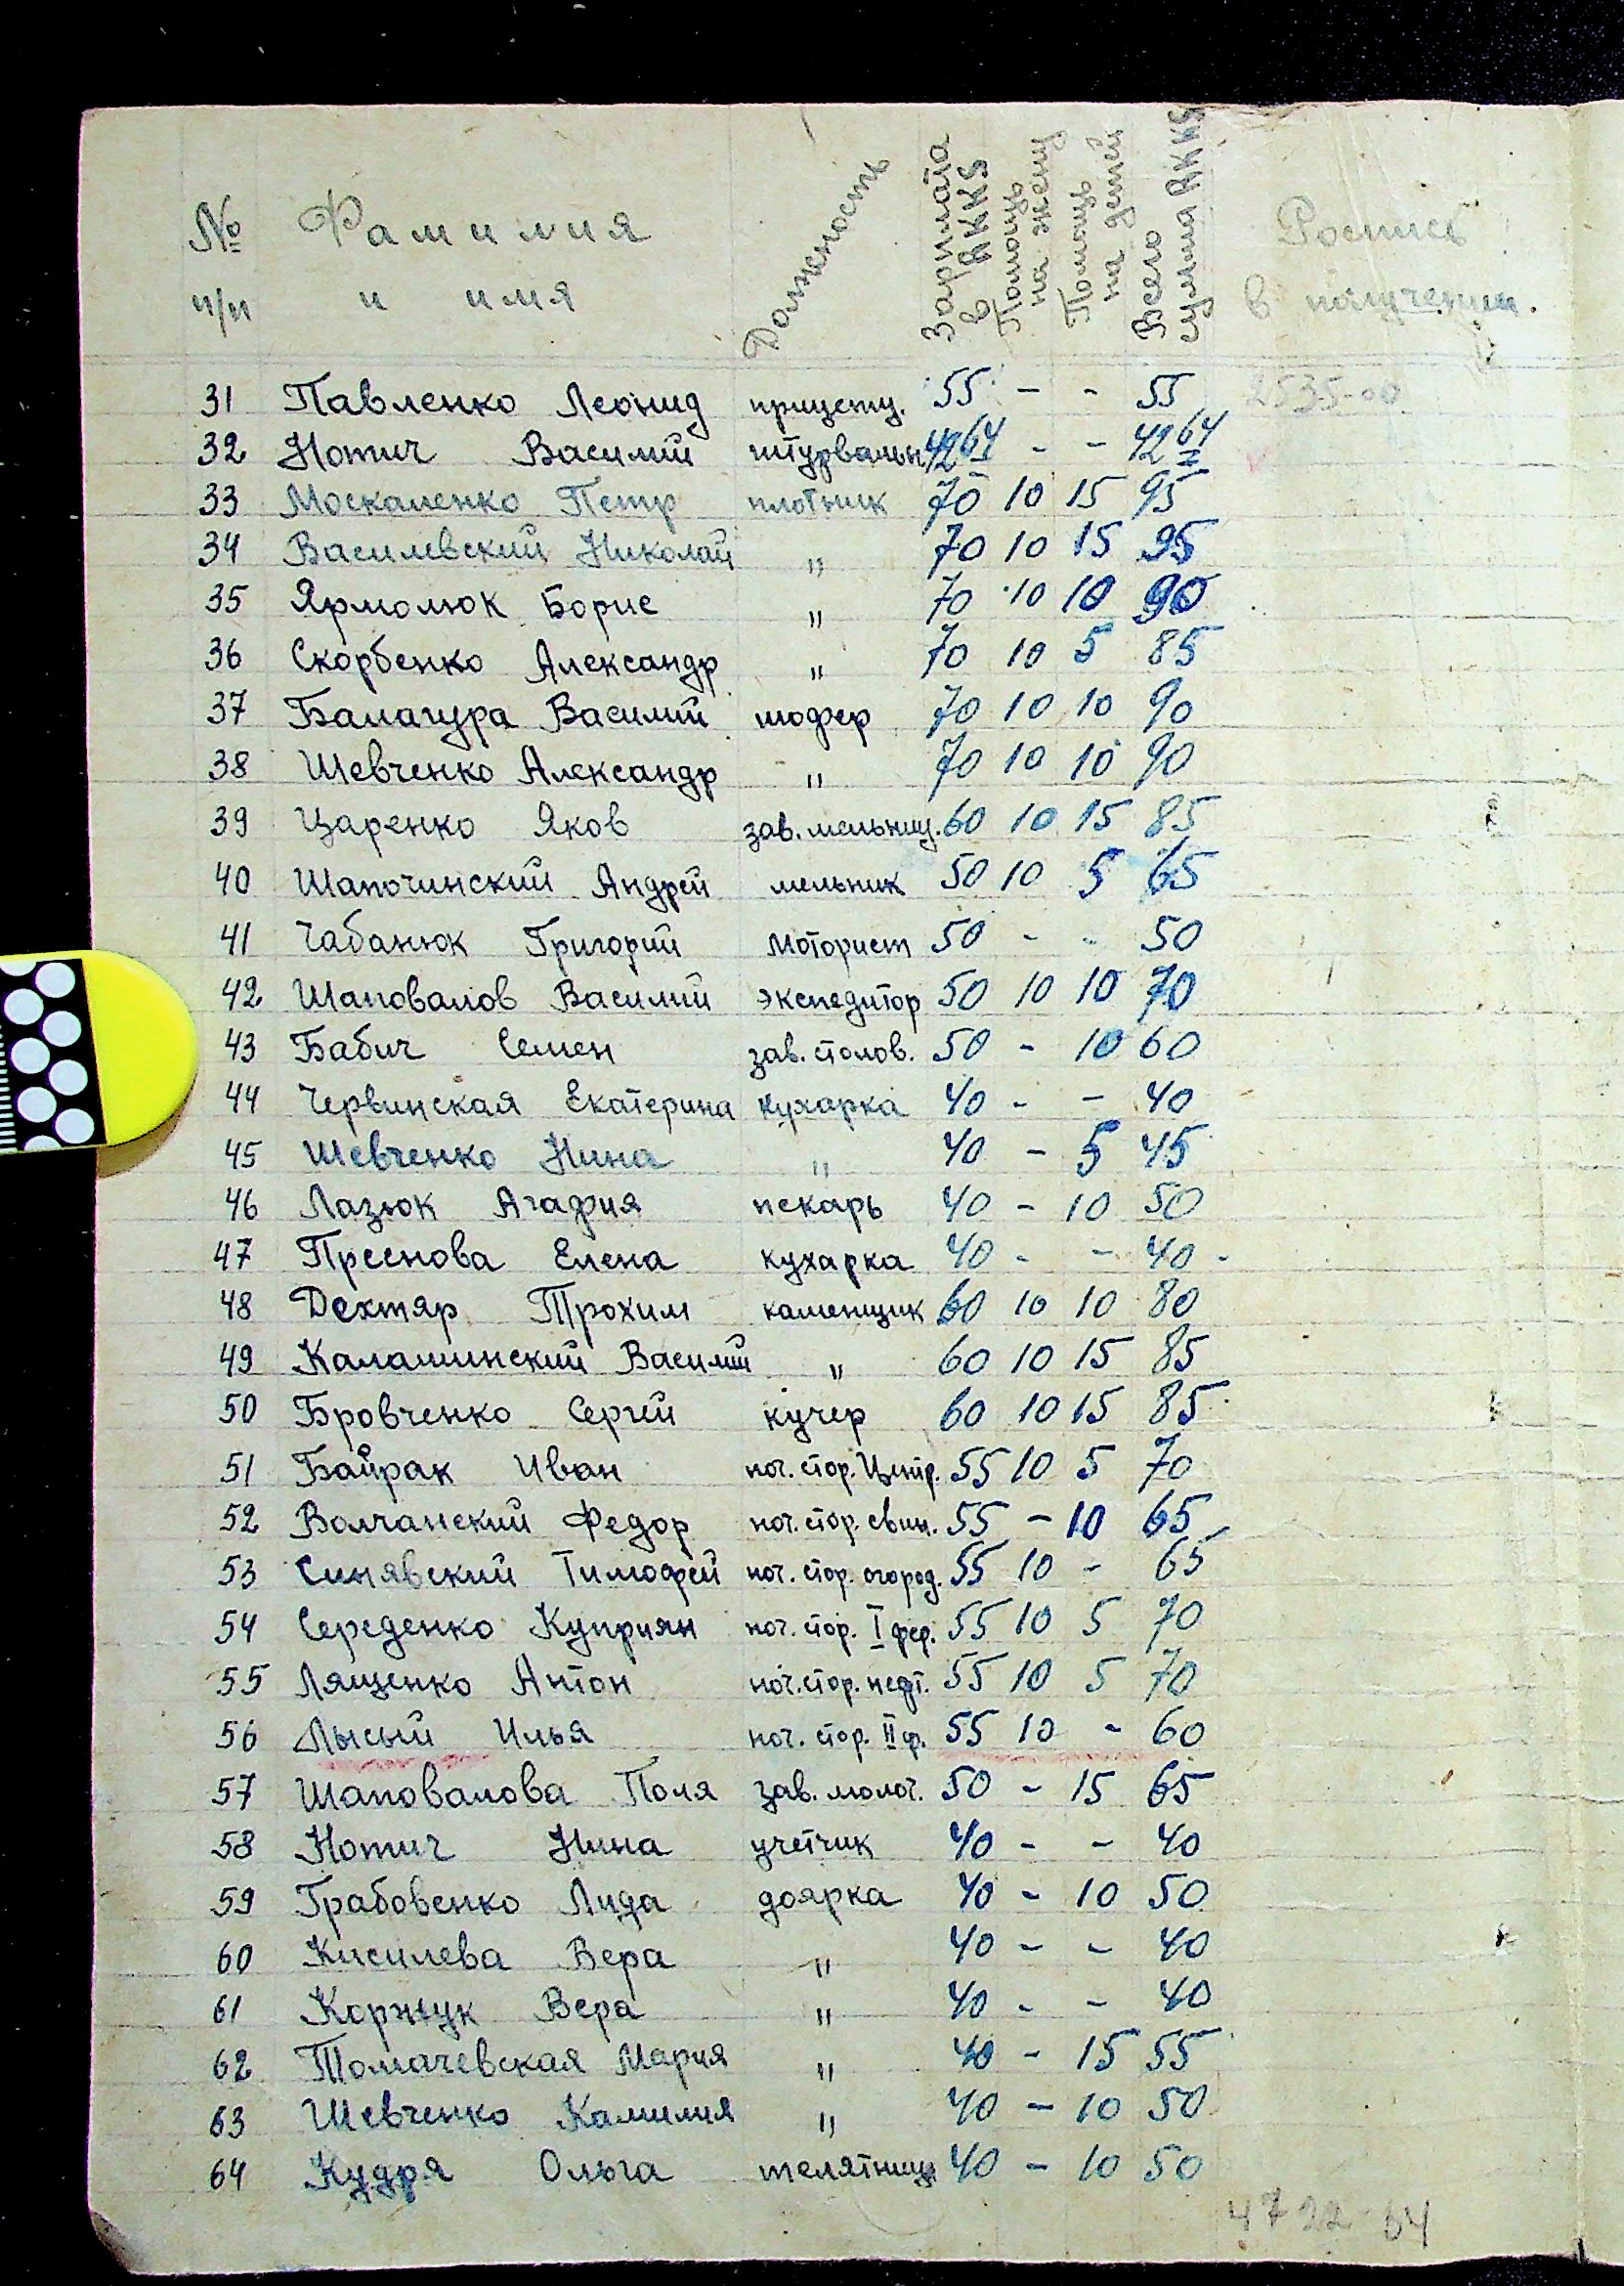 № п/п Фамилия и имя Должность Зарплата в RKKS Помощь на жену Помощь на детей Всего сумма RKKS Роспись в получении.
31 Павленко Леонид прицепщ. 55 - - 55 2535-00
32 Нотич Василий штурвальн. 42 64 - - 42 64
33 Москаленко Петр плотник 70 10 15 95
34 Василевский Николай " 70 10 15 95
35 Ярмолюк Борис " 70 10 10 90
36 Скорбенко Александр " 70 10 5 85
37 Балагура Василий шофер 70 10 10 90
38 Шевченко Александр " 70 10 10 90
39 Царенко Яков зав. мельниц. 60 10 15 85
40 Шапочинский Андрей мельник 50 10 5 65
41 Чабанюк Григорий моторист 50 - - 50
42 Шаповалов Василий экспедитор 50 10 10 70
43 Бабич Семен зав. столов. 50 - 10 60
44 Червинская Екатерина кухарка 40 - - 40
45 Шевченко Нина " 40 - 5 45
46 Лазюк Агафия пекарь 40 - 10 50
47 Преснова Елена кухарка 40 - - 40
48 Дехтяр Трохим каменщик 60 10 10 80
49 Калашинский Василий " 60 10 15 85
50 Бровченко Сергей кучер 60 10 15 85
51 Байрак Иван ноч. стор. Центр. 55 10 5 70
52 Волчанский Федор ноч. стор. свин. 55 - 10 65
53 Синявский Тимофей ноч. стор. огород. 55 10 - 65
54 Середенко Куприян ноч. стор. I фер. 55 10 5 70
55 Лященко Антон ноч. стор. нефт. 55 10 5 70
56 Лысый Илья ноч. стор. II ф. 55 10 - 60
57 Шаповалова Поля зав. молоч. 50 - 15 65
58 Нотич Нина учетчик 40 - - 40
59 Грабовенко Лида доярка 40 - 10 50
60 Кисилева Вера " 40 - - 40
61 Коржук Вера " 40 - - 40
62 Томачевская Мария " 40 - 15 55
63 Шевченко Камилия " 40 - 10 50
64 Кудря Ольга телятница 40 - 10 50
4722-64